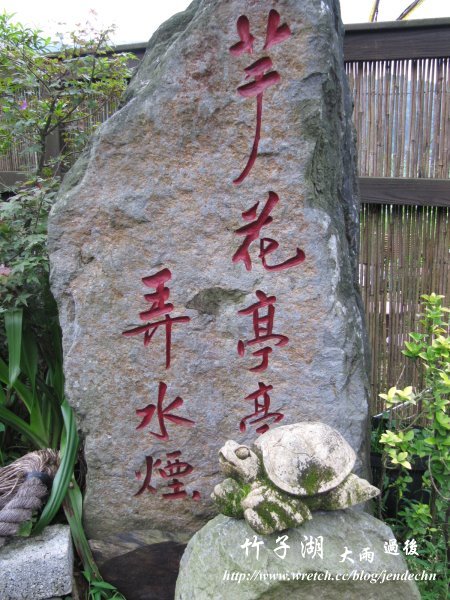 芋花亭亭
弄水煙
竹子湖 大雨過後
http://www.wretch.cc/blog/jendechn